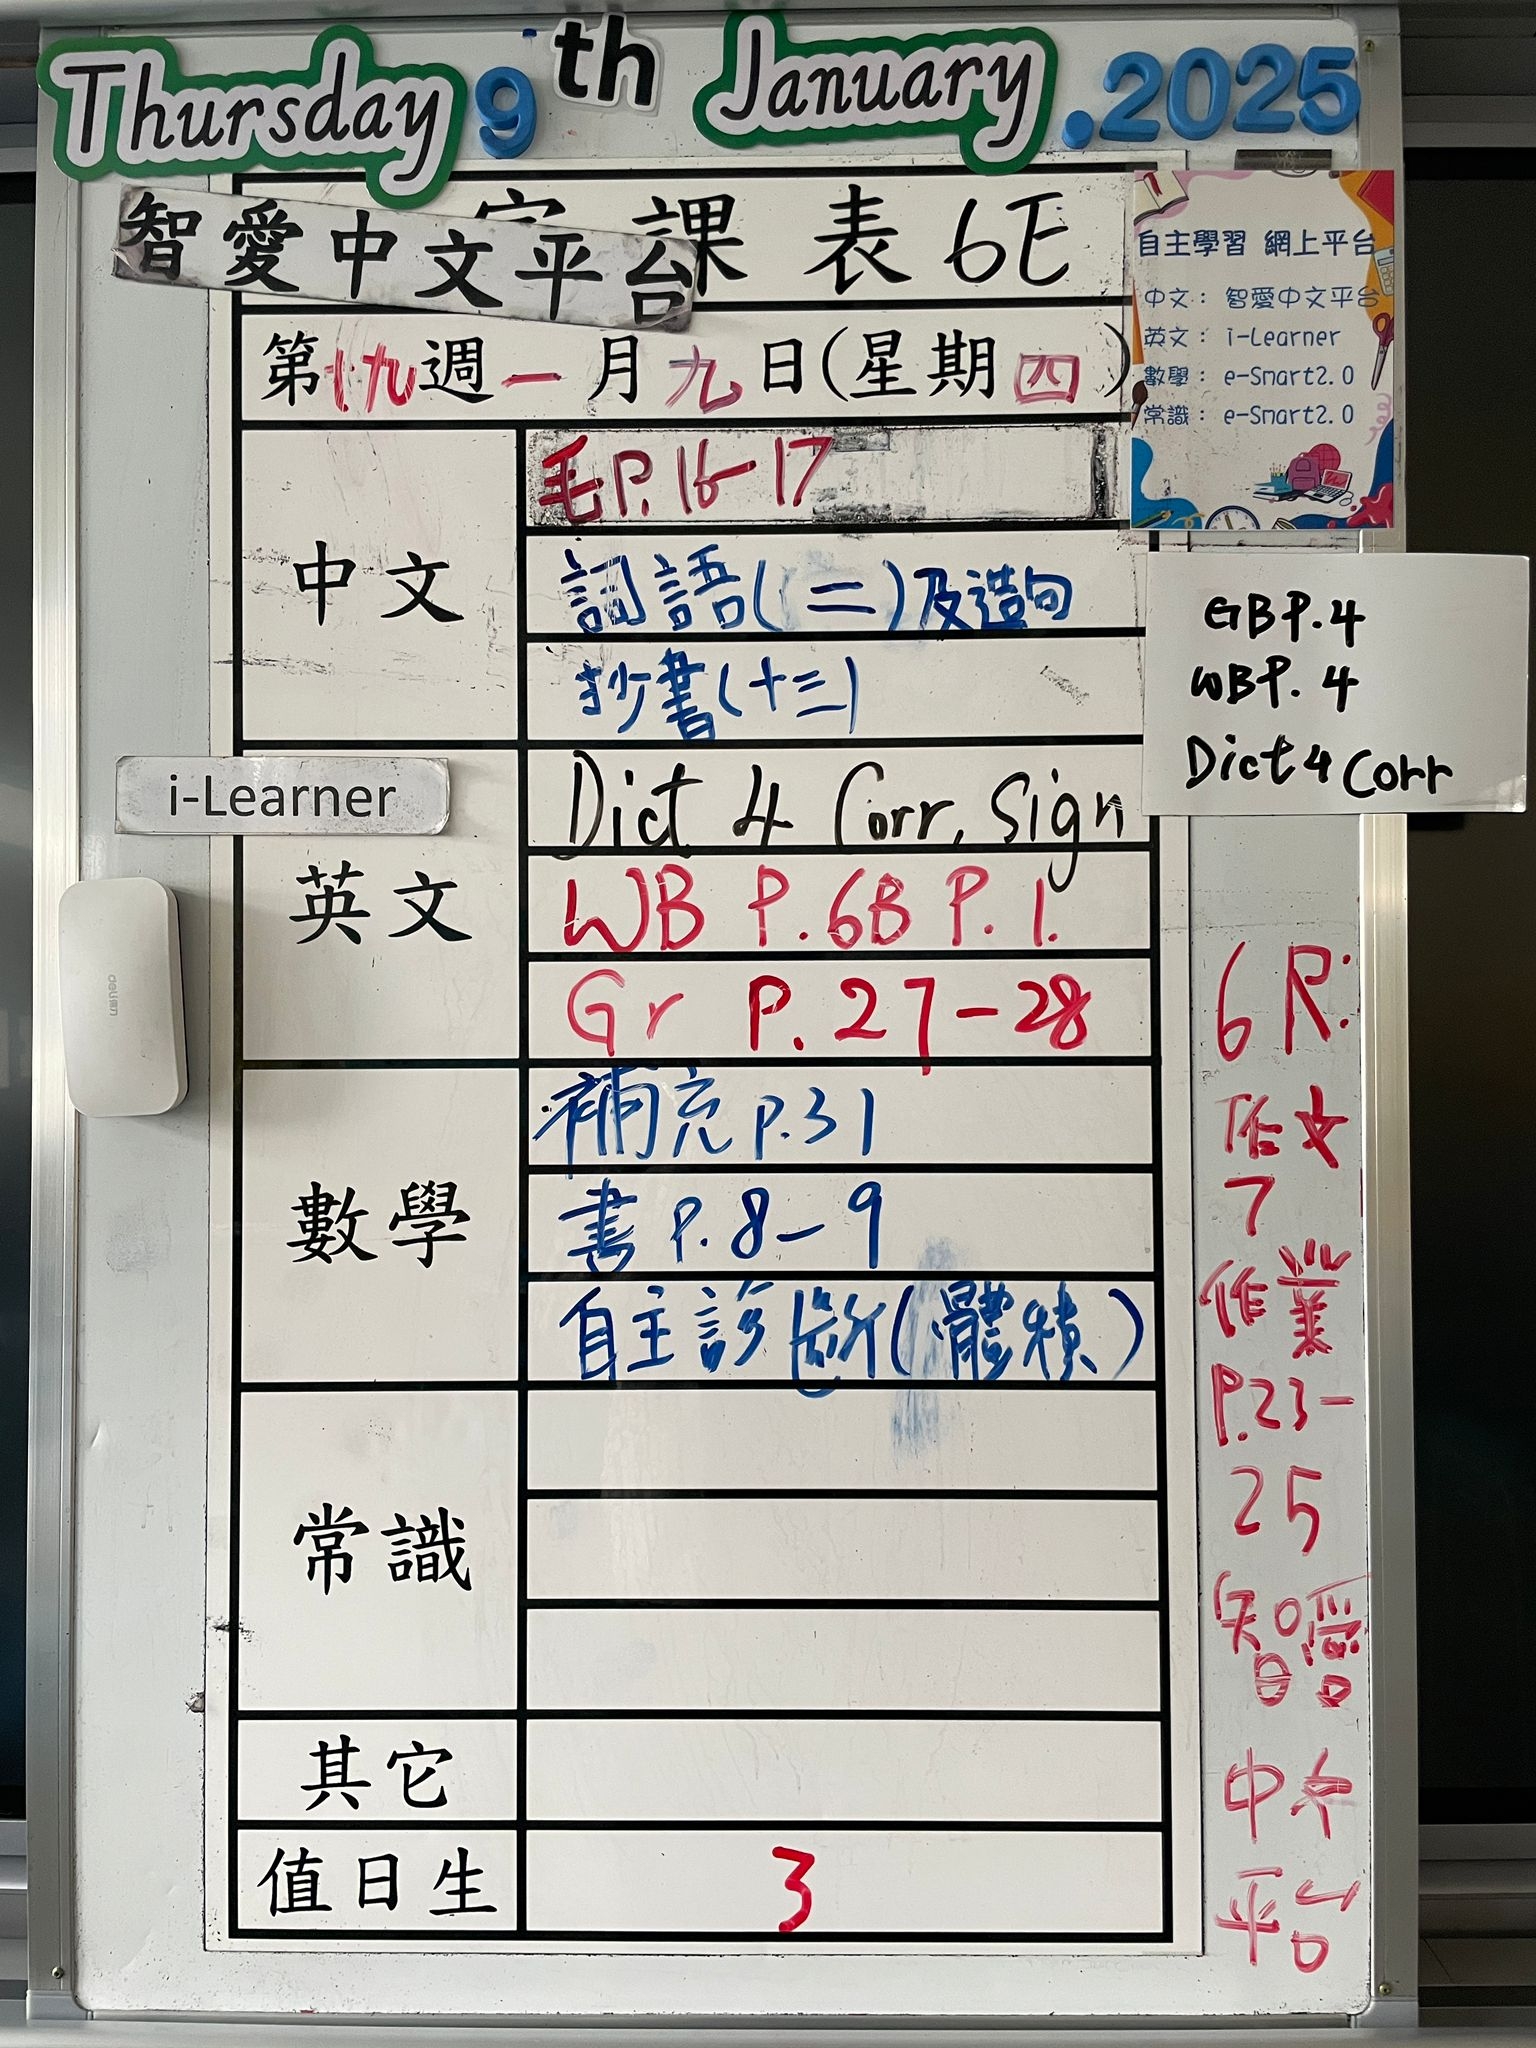 Thursday 9th January.2025
智愛中文平台
家課表 6E
第十九週一月九日(星期四)
自主學習 網上平台
中文：智愛中文平台
英文：i-Learner
數學：e-Smart2.0
常識：e-Smart2.0
中文
毛P.16-17
詞語(二)及造句
抄書(十三)
GB P.4
WB P.4
Dict 4 Corr
i-Learner
英文
Dict 4 Corr, Sign
WB P.6B P.1.
Gr P.27-28
數學
補充 P.31
書 P.8-9
自主診斷(體積)
常識
其它
值日生
3
deli
6R:
作文
7
作業
P.23-
25
智愛
中文
平台